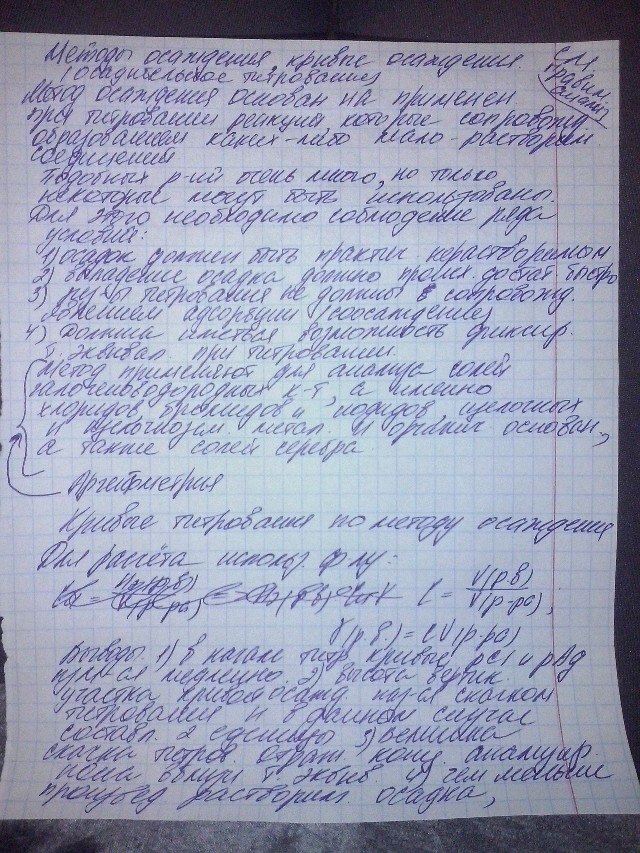 Методы осаждения, кривые осаждения.
(осадительное титрование)
см
гравим.
анализ
Метод осаждения основан на применен.
при титровании реакции которые сопровожд.
образованием каких-либо мало-раствор.
соединений
Подобных р-ий очень много, но только
некоторые могут быть использованы.
Для этого необходимо соблюдение ряда
условий:
1) осадок должен быть практич. нерастворимым
2) выпадение осадка должно произ. достат. быстро
3) рез-ты титрования не должны в сопровожд.
явлением адсорбции (соосаждение)
4) Должна иметься возможность фиксир.
т. эквивал. при титровании.
Метод применяют для анализа солей
галогеноводородных к-т, а именно
хлоридов, бромидов и иодидов, щелочных
и щелочнозем. метал. и органич. основан.,
а также солей серебра.
Аргентометрия
Кривые титрования по методу осаждения
Для расчёта использ. ф-лу:
C = ν(р.в.) / V(р-ра),
ν(р.в.) = CV(р-ра)
Выводы. 1) в начале титр. кривые pCl и pAg
изм-ся медленно. 2) высота вертик.
участка кривой осажд. наз-ся скачком
титрования и в данном случае
составл. 2 единицы 3) величина
скачка титров. отраж. конц. анализир.
иона вблизи т. эквив. и чем меньше
произвед. растворим. осадка,